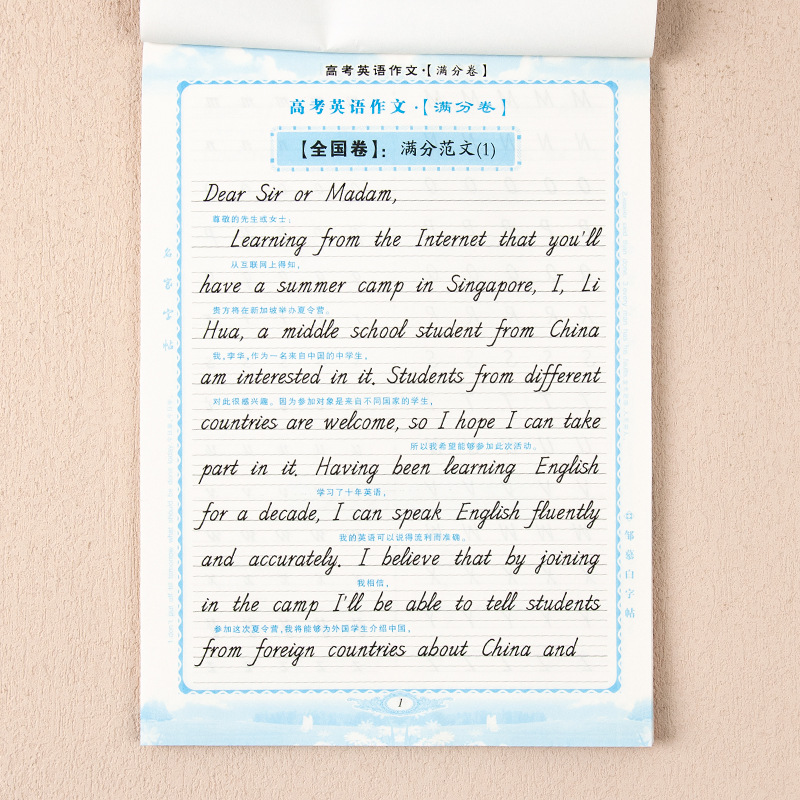 高考英语作文·【满分卷】
高考英语作文·【满分卷】
【全国卷】：满分范文(1)
Dear Sir or Madam,
尊敬的先生或女士：
Learning from the Internet that you'll
从互联网上得知，
have a summer camp in Singapore, I, Li
贵方将在新加坡举办夏令营。
Hua, a middle school student from China
我，李华，作为一名来自中国的中学生，
am interested in it. Students from different
对此很感兴趣。因为参加对象是来自不同国家的学生，
countries are welcome, so I hope I can take
所以我希望能够参加此次活动。
part in it. Having been learning English
学习了十年英语，
for a decade, I can speak English fluently
我的英语可以说得流利而准确。
and accurately. I believe that by joining
我相信，
in the camp I'll be able to tell students
参加这次夏令营，我将能够为外国学生介绍中国，
from foreign countries about China and
1
名家字帖
邹慕白字帖